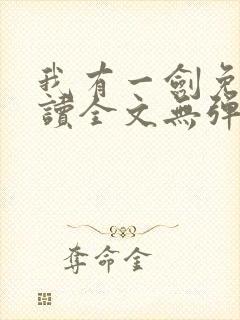 我有一劍免
讀全文無彈
奪命金